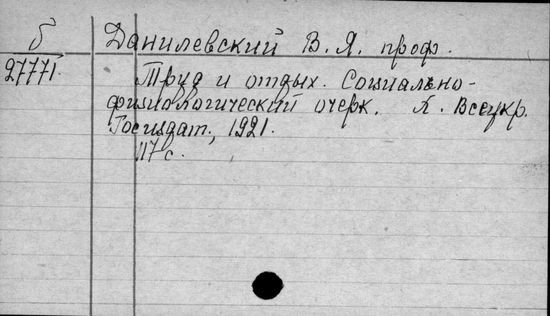 б Данилевский В. Я. проф.
27771. Труд и отдых. Социально-
физиологический очерк. Х. Всеукр.
Госиздат, 1921.
117 с.